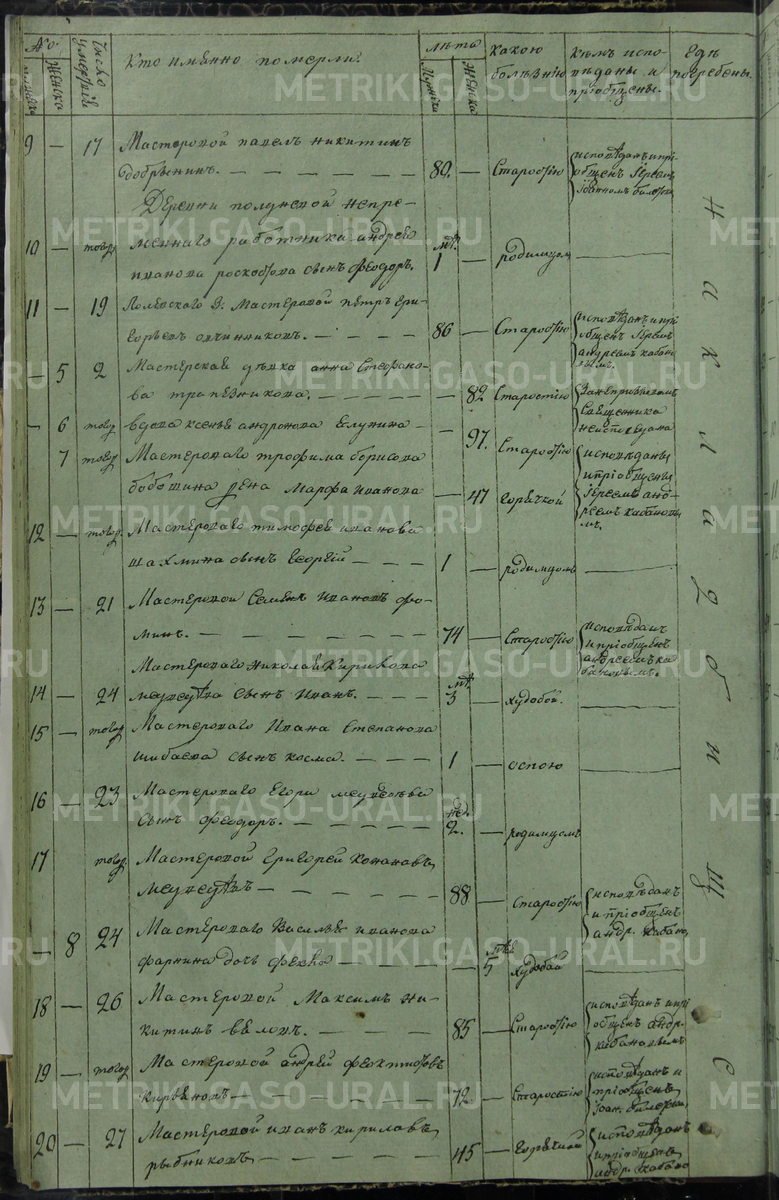 No
мужеска
женска
число умершiя
Кто имянно померли.
лѣта
Мужска
Женска
какою болѣзнiю
кѣмъ испо-
вѣданы и
прiобщены.
Гдѣ
погребены.
9 — 17 Мастеровой павелъ никитинъ
добрынинъ. — — — — — 80. — Старостiю исповѣданъ и прi-
общенъ Iереемъ
Iоанномъ
Деревни полуневой непре-
10 — тогож меннаго работника андрея мѣ. 1 — родимцом —
иванова сынъ феодоръ.
11 — 19 Полевского З: Мастеровой петръ гри-
горьевъ овчинниковъ. — — — — 86 — Старостiю исповѣданъ и прi-
общенъ Iереемъ
андреемъ кабано-
вымъ.
— 5 2 Мастерская дѣвка анна Стефано-
ва трапезникова. — — — — — 82 Старостiю
Священника
неисповѣдана
— 6 тогож вдова ксенья андронова Елунина — — 97. Старостiю
7 тогож Мастероваго трофима борисова
жена Марфа Иванова — 47 горячкой исповѣданы
и прiобщены
Iереемъ анд-
реемъ кабановы-
мъ.
12 — тогож. Мастероваго тимофея иванова
шахмина сынъ Георгiй — — — 1 — родимцомъ —
13 — 21 Мастеровой Семенъ Ивановъ фо-
минъ. — — — — — — 74 — Старостiю исповѣданъ
и прiобщенъ
андреемъ ка-
бановымъ.
Мастероваго Николая Кирилова
14 — 24 сынъ Иванъ. — — — мѣ. 3 — худобой. —
15 — тогож Мастероваго Ивана Степанова
шибаева сынъ косма. — — — — 1 — оспою —
16 — 23 Мастероваго Егора
сынъ феодоръ. — — — — — нед. 2. — родимцомъ —
17 тогож Мастеровой Григорей Конановъ
— — — — — 88 — старостiю исповѣданъ
и прiобщенъ
андр. кабано.
— 8 24 Мастероваго Василья иванова
дочь фекла — — — — 5 худобой —
18 — 26 Мастеровой Максимъ ни-
китинъ беловъ. — — — — — 85 — Старостiю исповѣданъ и прi-
общенъ андр.
кабановымъ
19 — тогож Мастеровой андрей феоктистовъ
— — — — — 72. — Старостiю исповѣданъ и
прiобщенъ
Iоан.
20 — 27 Мастеровой иванъ кириловъ
рыбниковъ — — — — — 45 — Горячкой исповѣданъ
и прiобщенъ
андр. кабано
На кладбищѣ
METRIKI.GASO-URAL.RU